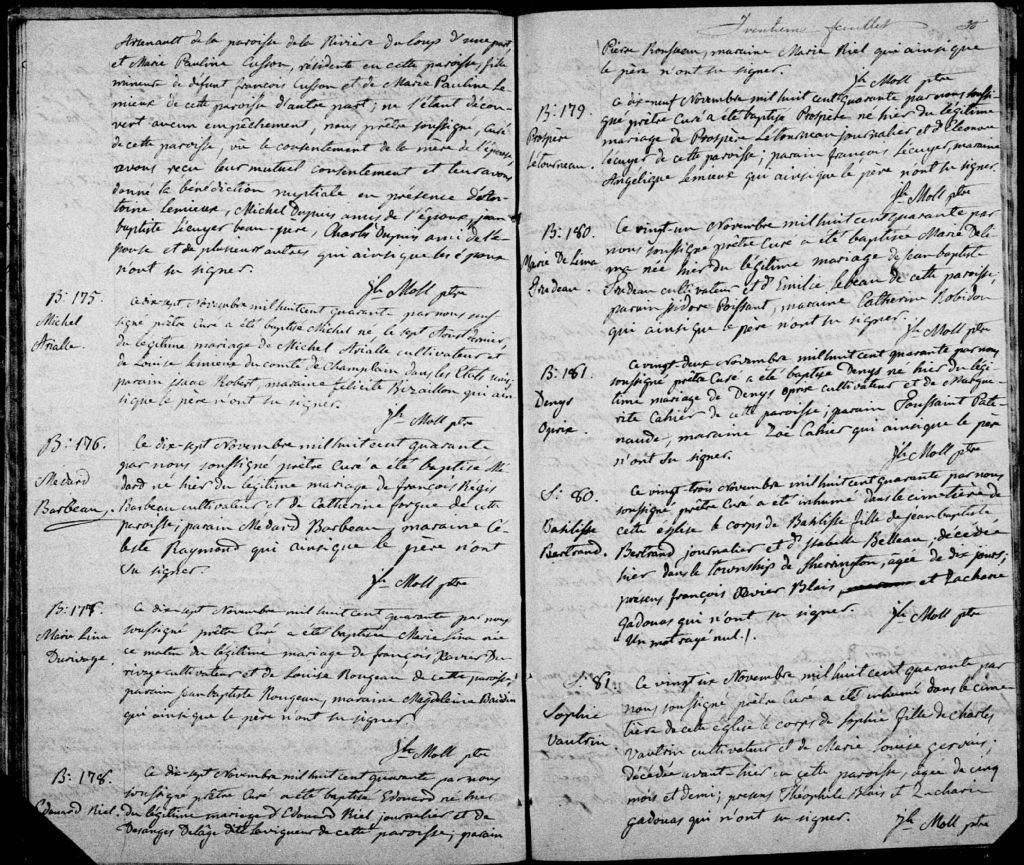 Arsenault de la paroisse de la Rivière du loup d'une part,
et Marie Pauline Cusson, résidente en cette paroisse, fille
mineure de défunt françois Cusson et de Marie Pauline Le-
mieux de cette paroisse d'autre part; ne s'étant décou-
vert aucun empêchement, nous prêtre soussigné, Curé
de cette paroisse, vu le consentement de la mère de l'épouse,
avons reçu leur mutuel consentement et leur avons
donné la bénédiction nuptiale en présence d'An-
toine Lemieux, Michel Dupuis amis de l'époux, jean
baptiste Lécuyer beau-père, Charles Dupuis ami de l'é-
pouse et de plusieurs autres qui ainsi que les époux
n'ont su signer.
Moll ptre
B: 175
Michel
Arialle.
Ce dix sept Novembre mil huit cent quarante par nous sous-
signé prêtre Curé a été baptisé Michel né le sept Aoust dernier,
du légitime mariage de Michel Arialle cultivateur et
de Louise Lemieux du comté de Champlain dans les Etats unis,
parain isaac Robert, maraine félicité Bizaillon qui ain-
si que le père n'ont su signer.
Moll ptre
B: 176.
Médard
Barbeau.
Ce dix-sept Novembre mil huit cent quarante
par nous soussigné prêtre Curé a été baptisé Mé-
dard né hier du légitime mariage de françois Régis
Barbeau cultivateur et de Catherine forgue de cette
paroisse; parain Médard Barbeau, maraine Cé-
leste Raymond qui ainsi que le père n'ont
su signer.
Moll ptre
B: 177.
Marie Lina
Durivage.
Ce dix-sept Novembre mil huit cent quarante par nous
soussigné prêtre Curé a été baptisée Marie Lina née
ce matin du légitime mariage de françois Xavier Du-
rivage cultivateur et de Louise Rougeau de cette paroisse,
parain jean baptiste Rougeau, maraine Magdeleine
qui ainsi que le père n'ont su signer.
Moll ptre
B: 178.
Edouard Riel.
Ce dix-sept Novembre mil huit cent quarante par nous
soussigné prêtre Curé a été baptisé Edouard né hier
du légitime mariage d'Edouard Riel journalier et de
Desanges Delage dite Lavigueur de cette paroisse; parain
Trentième feuillet
30
Pierre Rousseau, maraine Marie Riel qui ainsi que
le père n'ont su signer.
Moll ptre
B: 179.
Prospère
Letourneau.
Ce dix-neuf Novembre mil huit cent quarante par nous soussi-
gné prêtre Curé a été baptisé Prospère né hier du légitime
mariage de Prospère Letourneau journalier et d'Eleonore
Lécuyer de cette paroisse; parain françois Lécuyer, maraine
Angelique Lemieux qui ainsi que le père n'ont su signer.
Moll ptre
B: 180.
Marie De Lima
Trudeau.
Ce vingt-un Novembre mil huit cent quarante par
nous soussigné prêtre Curé a été baptisée Marie Deli-
ma née hier du légitime mariage de jean baptiste
Trudeau cultivateur et d'Emilie Lebeau de cette paroisse,
parain isidore Poissant, maraine Catherine Robidou
qui ainsi que le père n'ont su signer.
Moll ptre
B: 181.
Denys
Oprix.
Ce vingt-deux Novembre mil huit cent quarante par nous
soussigné prêtre Curé a été baptisé Denys né hier du légi-
time mariage de Denys Oprix cultivateur et de Margue-
rite Cahier de cette paroisse; parain Toussaint Pate-
naude, maraine Zoé Cahier qui ainsi que le père
n'ont su signer.
Moll ptre
S: 80.
Baptiste
Bertrand.
Ce vingt trois Novembre mil huit cent quarante par nous
soussigné prêtre Curé a été inhumé dans le cimetière de
cette église le corps de Baptiste fille de jean baptiste
Bertrand journalier et d'Isabelle Belleau, décédée
hier dans le township de Sherrington, agée de dix jours;
présens françois Xavier Blais, et Zacharie
Gadouas qui n'ont su signer.
Moll ptre
Un mot rayé nul.
S: 81.
Sophie
Vautrin.
Ce vingt six Novembre mil huit cent quarante par
nous soussigné prêtre Curé a été inhumé dans le cime-
tière de cette église le corps de Sophie fille de Charles
Vautrin cultivateur et de Marie Louise gervais;
décédée avant-hier en cette paroisse, agée de cinq
mois et demi; présens Théophile Blais et Zacharie
gadouas qui n'ont su signer.
Moll ptre